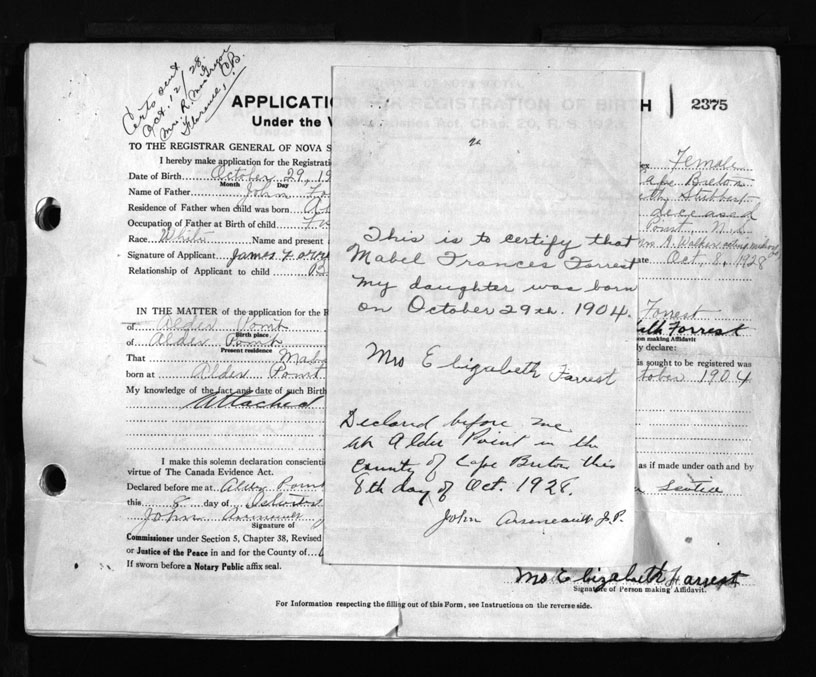 Certo sent
Oct. 12/28.
Mrs. R.
Florence,
C.B.
APPLICATI
H
2375
Under the V
TO THE REGISTRAR GENERAL OF NOVA S
I hereby make application for the Registrati
Date of Birth October 29, 19
Month Day
Name of Father John Fo
Residence of Father when child was born
Occupation of Father at Birth of child
Race White Name and present
Signature of Applicant James
Relationship of Applicant to child
IN THE MATTER of the application for the R
of Alder Point
Birth place
of Alder Point
Present residence
That Mab
born at Alder Point
My knowledge of the fact and date of such Birth
Attached
I make this solemn declaration conscienti
virtue of The Canada Evidence Act.
Declared before me at Alder Point
this 8 day of
John
Signature of
Commissioner under Section 5, Chapter 38, Revised
or Justice of the Peace in and for the County of
If sworn before a Notary Public affix seal.
This is to certify that
Mabel Frances Forrest
my daughter was born
on October 29th. 1904.
Mrs Elizabeth Farrest
Declared before me
at Alder Point in the
County of Cape Breton this
8th day of Oct. 1928.
John J.P.
ex Female
Cape Breton
Stubbert
deceased
Point, N.S.
ate Oct. 8, 1928
Forrest
Forrest
on making Affidavit
ly declare:
is sought to be registered was
tober 1904
as if made under oath and by
Scotia
Mrs Elizabeth Farrest
Signature of Person making Affidavit.
For Information respecting the filling out of this Form, see Instructions on the reverse side.